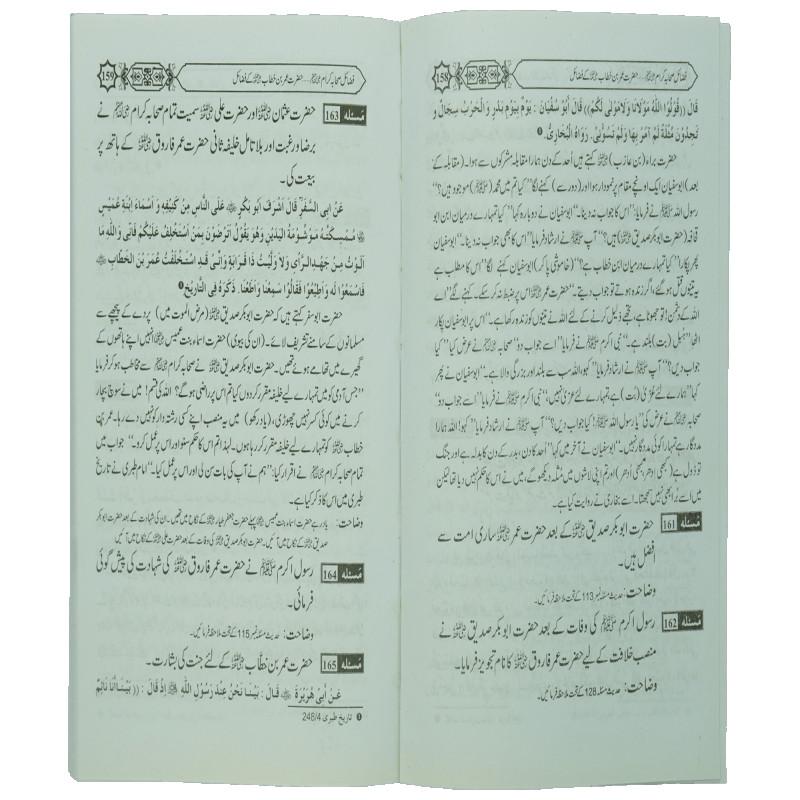 فضائل صحابہ کرام ﷢ ... حضرت عمر بن خطاب ﷜ کے فضائل
158
قَالَ ((قُوْلُوْا اللّٰهُ مَوْلَانَا وَلَامَوْلٰى لَكُمْ)) قَالَ أَبُوْ سُفْيَانَ : يَوْمٌ بِيَوْمِ بَدْرٍ وَ الْحَرْبُ سِجَالٌ وَ
تَجِدُوْنَ مُثْلَةً لَمْ آمُرْ بِهَا وَلَمْ تَسُؤْنِيْ. رَوَاهُ الْبُخَارِيُّ ❶
حضرت براء (بن عازب) ﷜ کہتے ہیں اُحد کے دن ہمارا مقابلہ مشرکوں سے ہوا۔ (مقابلہ کے
بعد) ابوسفیان ایک اونچے مقام پر نمودار ہوا اور (دور سے) کہنے لگا "کیا تم میں محمد (ﷺ) موجود ہیں؟"
رسول اللہ ﷺ نے فرمایا "اس کا جواب نہ دینا۔" ابوسفیان نے دوبارہ کہا "کیا تمہارے درمیان ابن ابو
قحافہ (حضرت ابوبکر صدیق ﷜) ہیں؟" آپ ﷺ نے ارشاد فرمایا "اس کا بھی جواب نہ دینا۔" ابوسفیان
پھر پکارا "کیا تمہارے درمیان ابن خطاب ہے؟" (خاموشی پا کر) ابوسفیان کہنے لگا "اس کا مطلب ہے
یہ تینوں قتل ہو گئے، اگر زندہ ہوتے تو جواب دیتے۔" حضرت عمر ﷜ اس پر ضبط نہ کر سکے۔ کہنے لگے "اے
اللہ کے دشمن! تو جھوٹا ہے، تجھے ذلیل کرنے کے لئے اللہ نے تینوں کو زندہ رکھا ہے۔" اس پر ابوسفیان پکار
اٹھا "ہُبل (بت) بلند ہے۔" نبی اکرم ﷺ نے فرمایا "اسے جواب دو" صحابہ ﷢ نے عرض کیا "کیا
جواب دیں؟" آپ ﷺ نے ارشاد فرمایا "کہو اللہ سب سے بلند اور بزرگی والا ہے۔" ابوسفیان نے پھر
کہا "ہمارے لئے عُزیٰ (بت) ہے تمہارے لئے عزیٰ نہیں،" نبی اکرم ﷺ نے فرمایا "اسے جواب دو"
صحابہ ﷢ نے عرض کی "یا رسول اللہ ﷺ! کیا جواب دیں؟" آپ ﷺ نے ارشاد فرمایا "کہو! اللہ ہمارا
مددگار ہے تمہارا کوئی مددگار نہیں۔" ابوسفیان نے آخر میں کہا "اُحد کا دن، بدر کے دن کا بدلہ ہے اور جنگ
تو ڈول ہے (کبھی اِدھر کبھی اُدھر) تم اپنی لاشوں میں مُثلہ دیکھو گے، میں نے اس کا حکم نہیں دیا تھا لیکن
میں اسے بُرا بھی نہیں سمجھتا۔ اسے بخاری نے روایت کیا ہے۔
مَسئلہ 161 حضرت ابوبکر صدیق ﷜ کے بعد حضرت عمر ﷜ ساری امت سے
افضل ہیں۔
وضاحت: حدیث مسئلہ نمبر 113 کے تحت ملاحظہ فرمائیں۔
مَسئلہ 162 رسول اکرم ﷺ کی وفات کے بعد حضرت ابوبکر صدیق ﷜ نے
منصب خلافت کے لیے حضرت عمر فاروق ﷜ کا نام تجویز فرمایا۔
وضاحت: حدیث مسئلہ نمبر 128 کے تحت ملاحظہ فرمائیں۔
فضائل صحابہ کرام ﷢ ... حضرت عمر بن خطاب ﷜ کے فضائل
159
مَسئلہ 163 حضرت عثمان ﷜ اور حضرت علی ﷜ سمیت تمام صحابہ کرام ﷢ نے
برضا و رغبت اور بلا تامل خلیفہ ثانی حضرت عمر فاروق ﷜ کے ہاتھ پر
بیعت کی۔
عَنْ اَبِى السَّفَرِ قَالَ اَشْرَفَ اَبُوْ بَكْرٍ ﷜ عَلَى النَّاسِ مِنْ كَنِيْفِهِ وَ اَسْمَاءُ ابْنَةُ عُمَيْسٍ
مُمْسِكَتُهُ مَوْشُوْمَةُ الْيَدَيْنِ وَهُوَ يَقُوْلُ اَتَرْضَوْنَ بِمَنْ اَسْتَخْلِفُ عَلَيْكُمْ فَاِنِّىْ وَاللّٰهِ مَا
اَلَوْتُ مِنْ جَهْدِ الرَّأْىِ وَلَا وَلَّيْتُ ذَا قَرَابَةٍ وَاِنِّىْ قَدِ اسْتَخْلَفْتُ عُمَرَ بْنَ الْخَطَّابِ ﷜
فَاسْمَعُوْا لَهُ وَ اَطِيْعُوْا فَقَالُوْا سَمِعْنَا وَ اَطَعْنَا. ذَكَرَهُ فِى التَّارِيْخِ ❶
حضرت ابوسفر کہتے ہیں کہ حضرت ابوبکر صدیق ﷜ (مرض الموت میں) پردے کے پیچھے سے
مسلمانوں کے سامنے تشریف لائے۔ (ان کی بیوی) حضرت اسماء بنت عمیس ﷞ انہیں اپنے ہاتھوں کے
گھیرے میں تھامے ہوئے تھیں۔ حضرت ابوبکر صدیق ﷜ نے صحابہ کرام ﷢ سے مخاطب ہو کر فرمایا
"جس آدمی کو میں تمہارے لیے خلیفہ مقرر کردوں کیا تم اس پر راضی ہو گے؟ اللہ کی قسم! میں نے سوچ بچار
کرنے میں کوئی کسر نہیں چھوڑی، (یاد رکھو) میں یہ منصب اپنے کسی رشتہ دار کو نہیں دے رہا۔ عمر بن
خطاب ﷜ کو تمہارے لیے خلیفہ مقرر کر رہا ہوں۔ لہٰذا تم اس کا حکم سننا اور اس پر عمل کرنا۔" جواب میں
تمام صحابہ کرام ﷢ نے اقرار کیا: "ہم نے آپ کی بات سن لی اور اس پر عمل کیا۔" امام طبری نے تاریخ
طبری میں اس کا ذکر کیا ہے۔
وضاحت: یاد رہے حضرت اسماء بنت عمیس ﷞ پہلے حضرت جعفر طیار ﷜ کے نکاح میں تھیں۔ ان کی شہادت کے بعد حضرت ابوبکر
صدیق ﷜ کے نکاح میں آئیں۔ حضرت ابوبکر صدیق ﷜ کی وفات کے بعد حضرت علی ﷜ کے نکاح میں آئیں۔
مَسئلہ 164 رسول اکرم ﷺ نے حضرت عمر فاروق ﷜ کی شہادت کی پیش گوئی
فرمائی۔
وضاحت: حدیث مسئلہ نمبر 115 کے تحت ملاحظہ فرمائیں۔
مَسئلہ 165 حضرت عمر بن خطاب ﷜ کے لئے جنت کی بشارت۔
عَنْ أَبِىْ هُرَيْرَةَ ﷜ قَالَ : بَيْنَا نَحْنُ عِنْدَ رَسُوْلِ اللّٰهِ ﷺ اِذْ قَالَ : ((بَيْنَا أَنَا نَائِمٌ
❶ تاریخ طبری 248/4